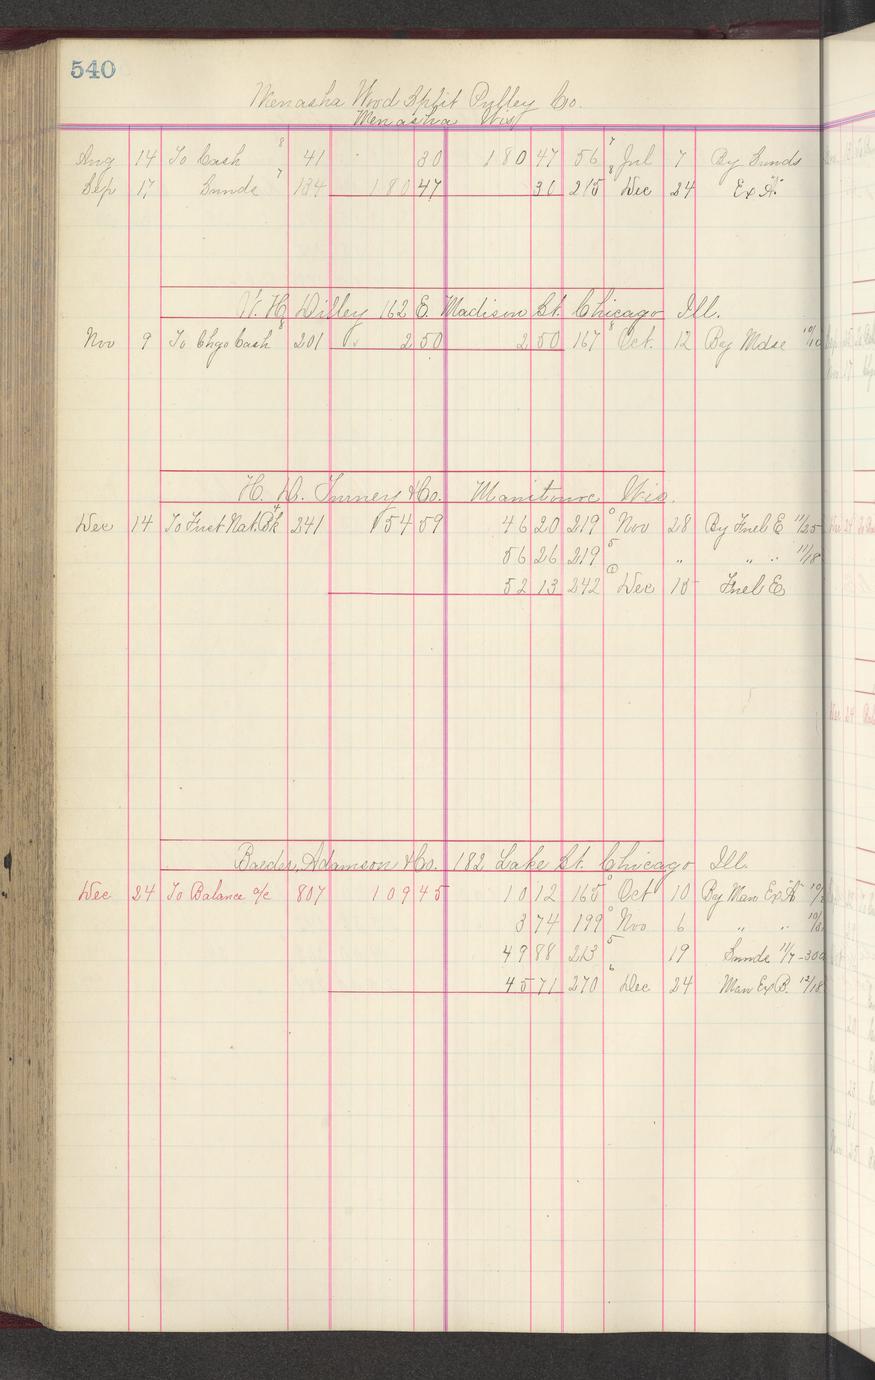 540
Menasha Wood Split Pulley Co.
Menasha Wis
Aug 14 To Cash 8 41 30 180 47 56 7 Jul 7 By Sunds
Sep 17 Sunds 7 134 180 47 30 215 8 Dec 24 Ex "A"
V. H. Dilley 162 E. Madison St. Chicago Ill.
Nov 9 To Chgo Cash 8 201 2 50 2 50 167 8 Oct. 12 By Mdse
H. D. Turney & Co. Manitowoc Wis.
Dec 14 To First Nat. Bk 4 241 154 59 46 20 219 Nov 28 By Fuel E 11/25
56 26 219 5 " " " 11/18
52 13 242 Dec 15 Fuel E
Baeder, Adamson & Co. 182 Lake St. Chicago Ill.
Dec 24 To Balance a/c 807 109 45 10 12 165 Oct 10 By Man Ex "A"
3 74 199 Nov 6 " "
49 88 213 5 19 Sunds 11/7 - 30
45 71 270 6 Dec 24 Man Ex B. 12/18